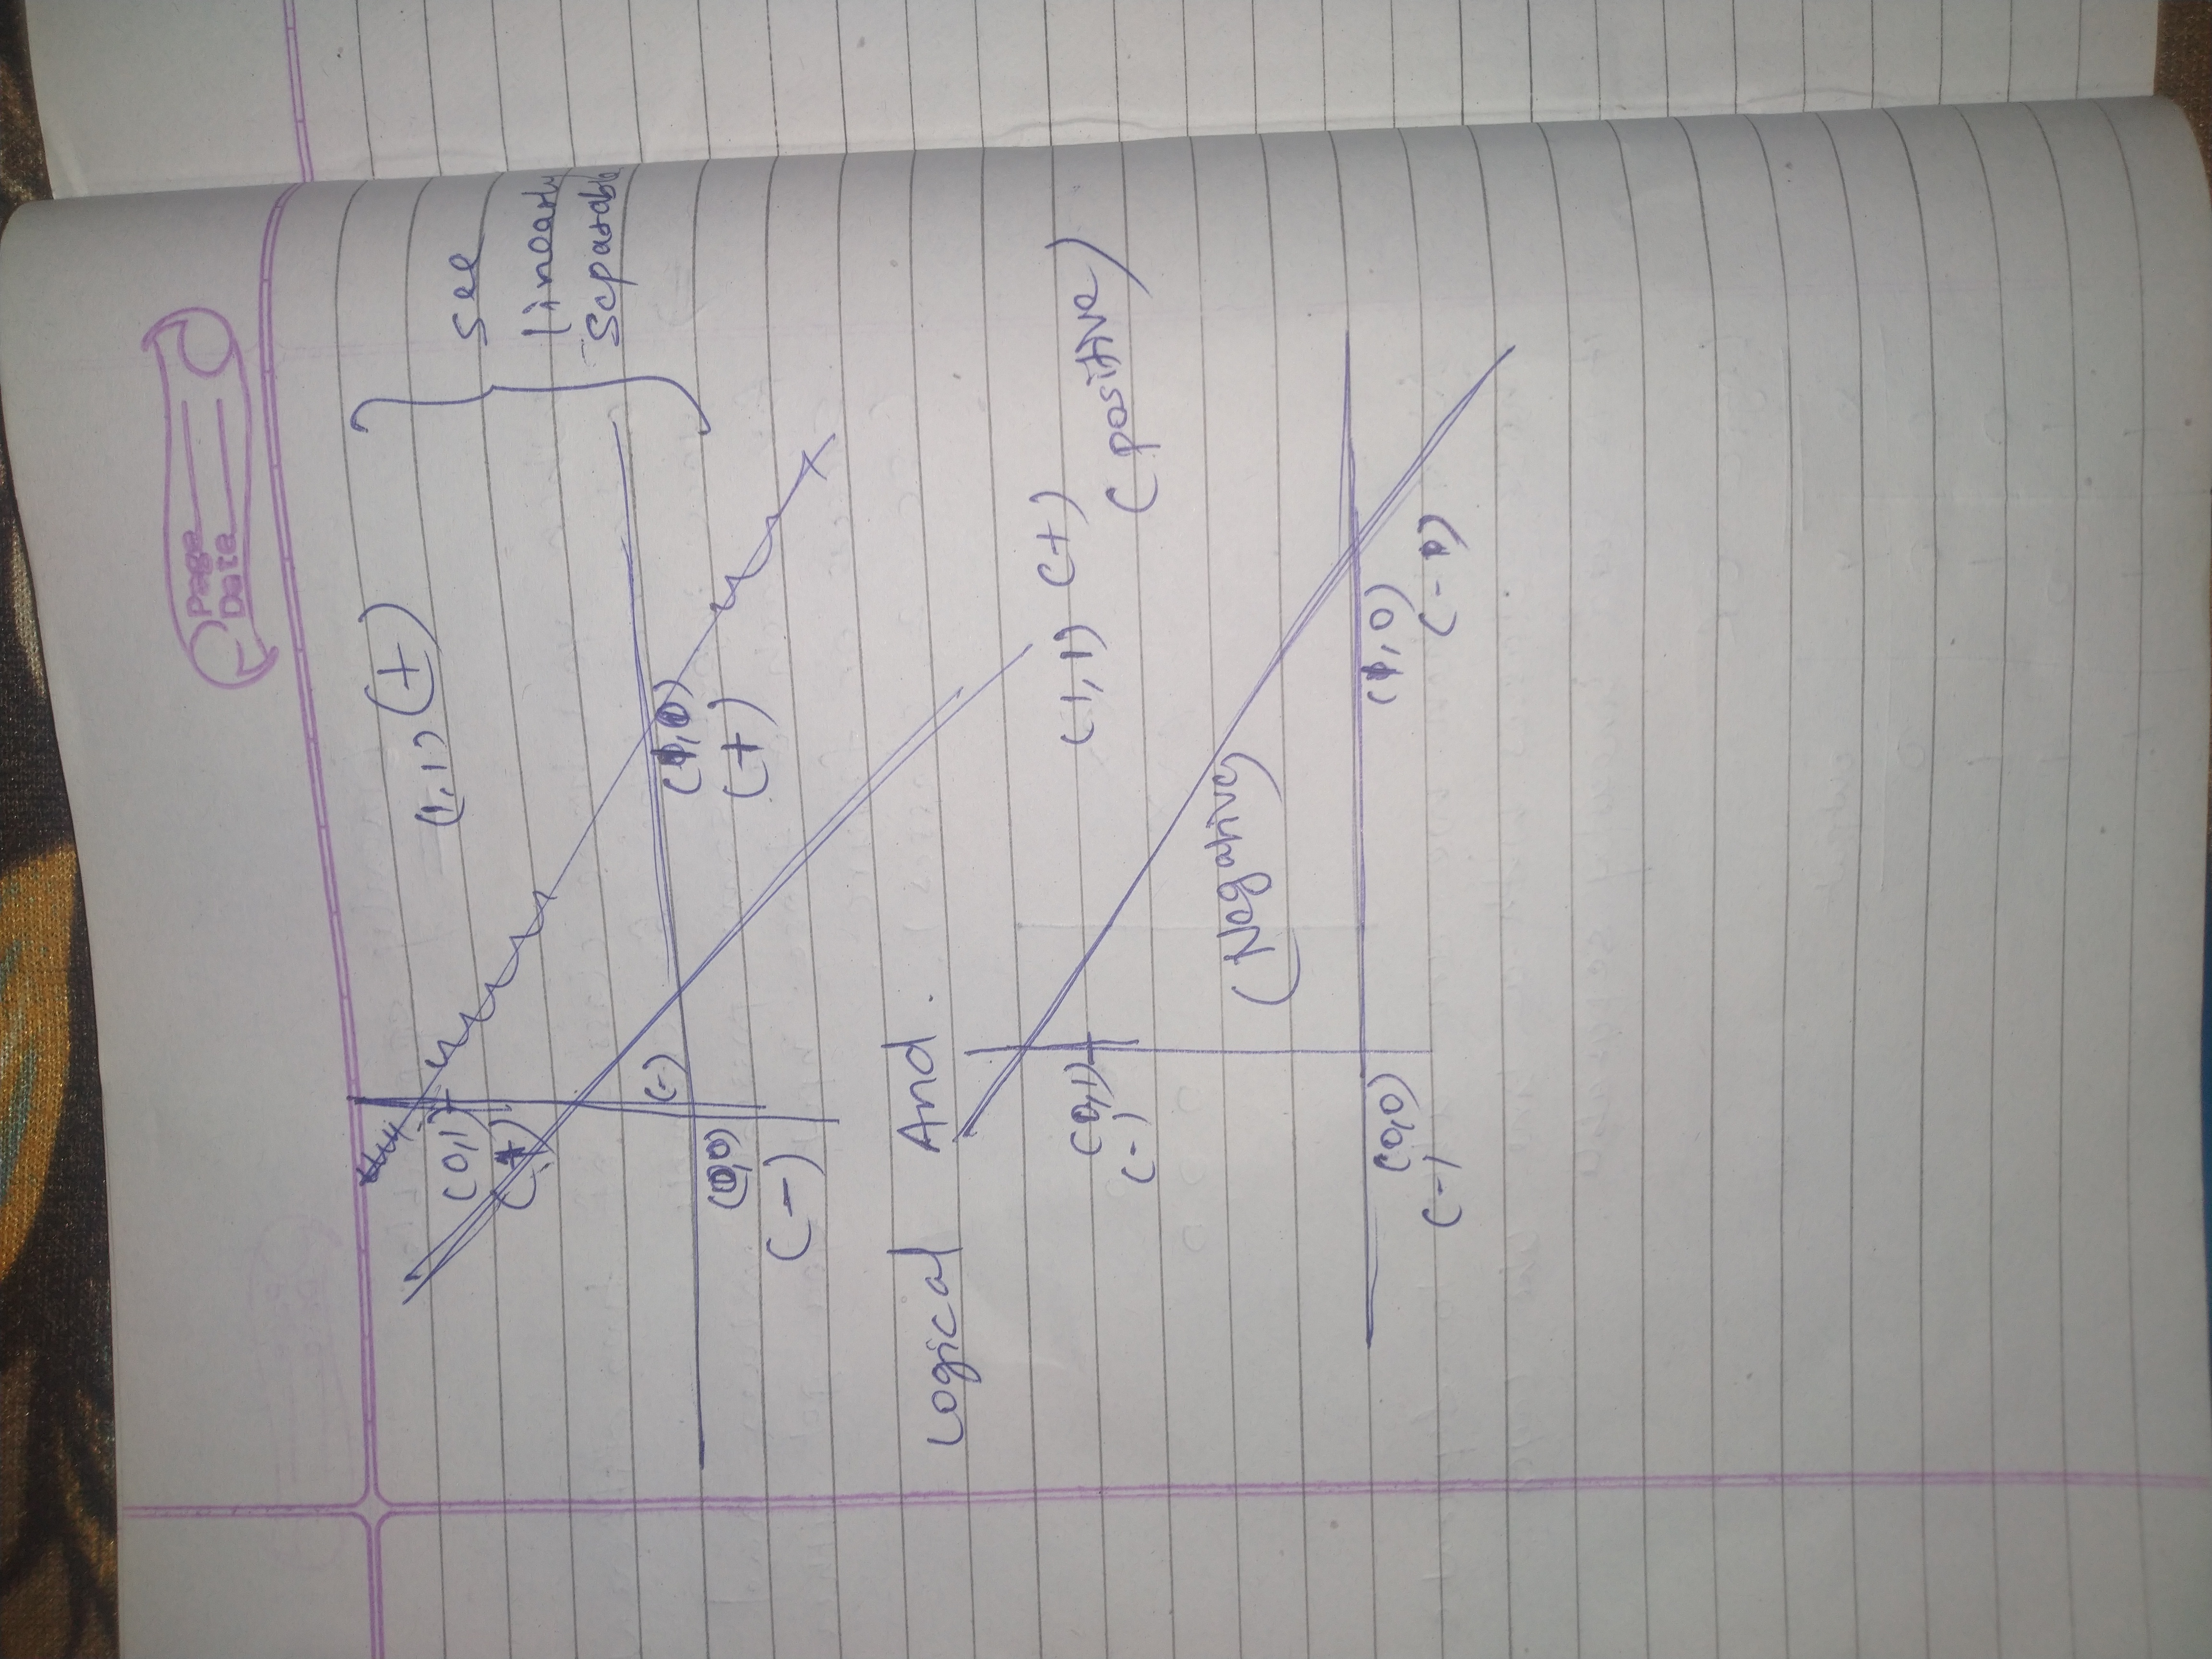 Page
Date
(0,1)
(+)
(1,1) (+)
see
linearly
separable
(-)
(0,0)
(-)
(1,0)
(+)
Logical And.
(0,1)
(-)
(1,1) (+)
(positive)
(Negative)
(0,0)
(-)
(1,0)